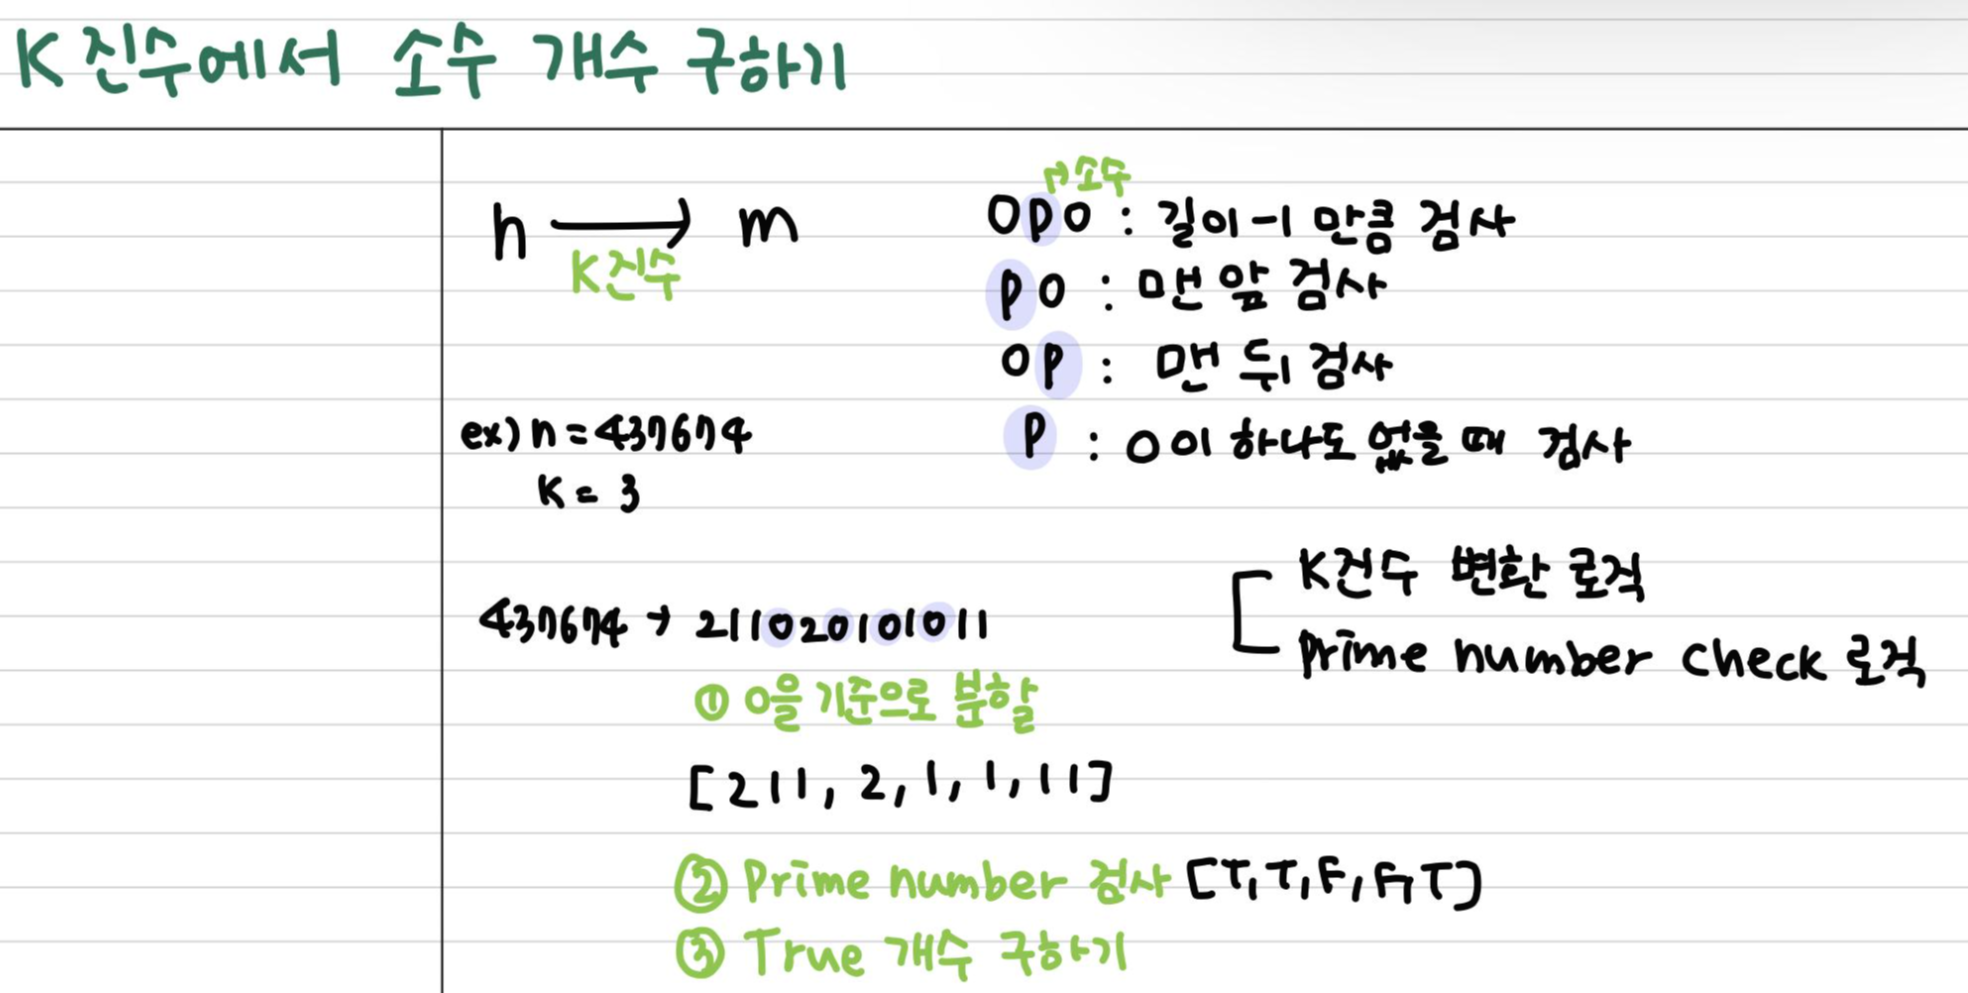 K진수에서 소수 개수 구하기
n → m
K진수
↱소수
0P0 : 길이-1 만큼 검사
P0 : 맨 앞 검사
0P : 맨 뒤 검사
P : 0이 하나도 없을 때 검사
ex) n = 437674
K = 3
437674 → 211020101011
① 0을 기준으로 분할
[211, 2, 1, 1, 11]
② Prime number 검사 [T, T, F, F, T]
③ True 개수 구하기
K진수 변환 로직
Prime number check 로직